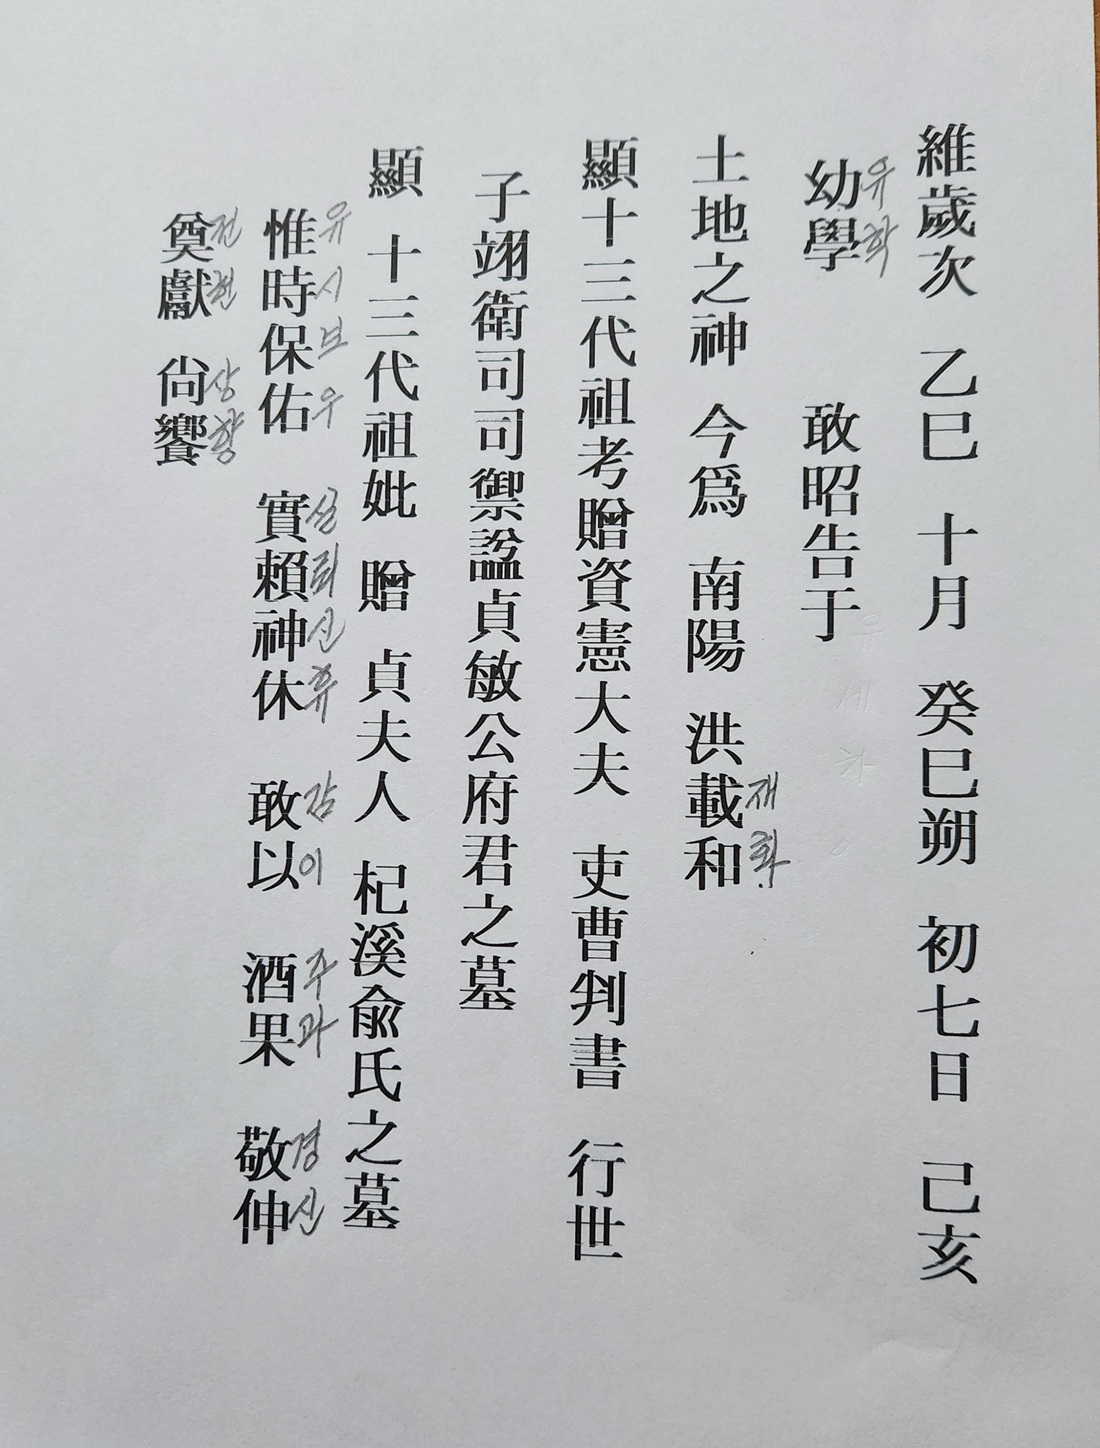 維歲次 乙巳 十月 癸巳朔 初七日 己亥
幼學 敢昭告于
유학
土地之神 今爲 南陽 洪載和
재화
顯十三代祖考贈資憲大夫 吏曹判書 行世
子翊衛司司禦諡貞敏公府君之墓
顯 十三代祖妣 贈 貞夫人 杞溪兪氏之墓
惟時保佑 實賴神休 敢以 酒果 敬伸
유시보우 실뢰신휴 감이 주과 경신
奠獻 尙饗
전헌 상향